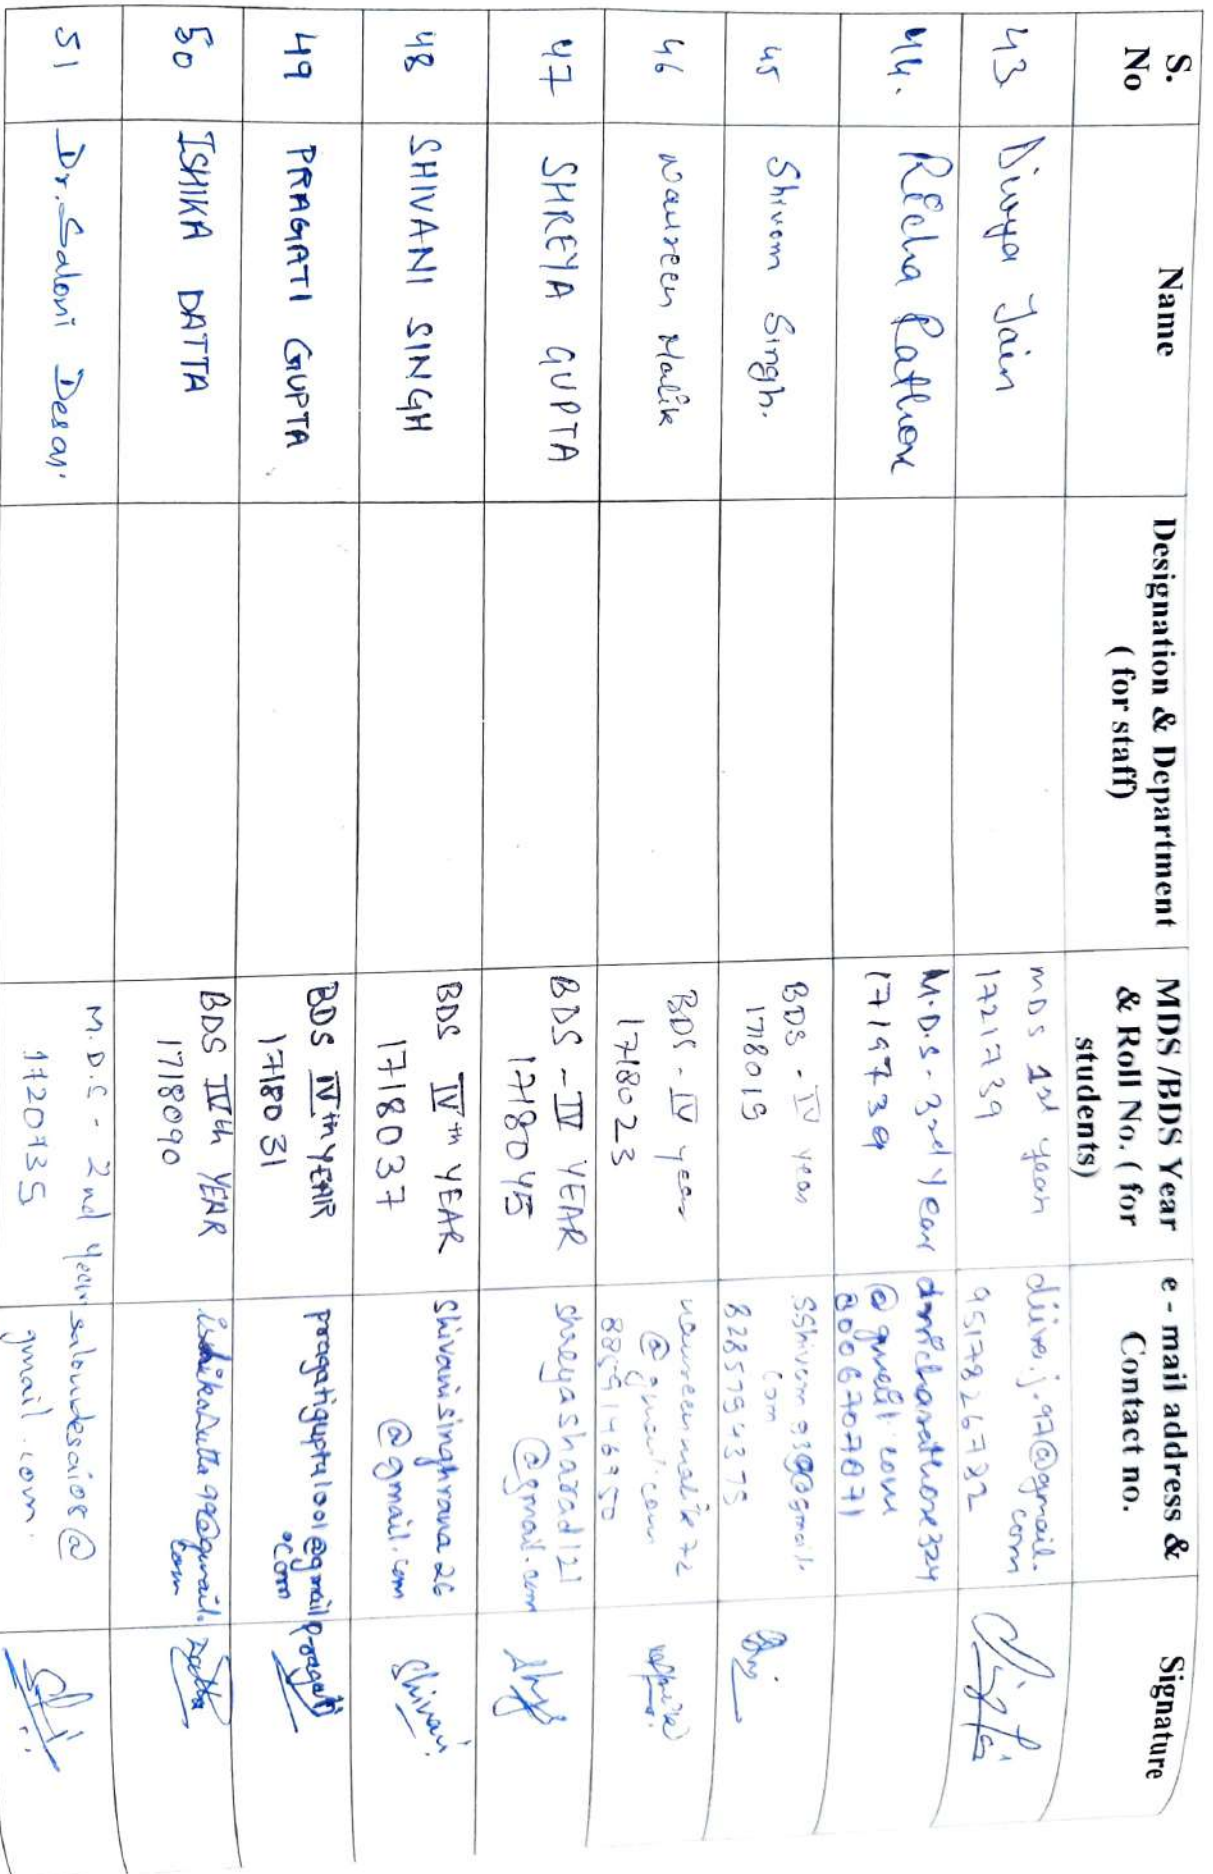 S. No
Name
Designation & Department ( for staff)
MDS /BDS Year & Roll No. ( for students)
e - mail address & Contact no.
Signature
43
Divya Jain
MDS 1st year
1721739
diive.j.97@gmail.
com
9517826722
44.
Richa Rathore
M.D.S. 3rd Year
1719739
drricharathore324
@gmail.com
45
Shivom Singh.
BDS - IV year
1718019
com
8285794375
46
Naureen Malik
BDS - IV year
1718023
naureenmalik72
@gmail.com
47
SHREYA GUPTA
BDS - IV YEAR
1718045
shreyasharad121
@gmail.com
48
SHIVANI SINGH
BDS IVth YEAR
1718037
shivanisinghrana26
@gmail.com
Shivani.
49
PRAGATI GUPTA
BDS IVth YEAR
1718031
pragatigupta1001@gmail
.com
Pragati
50
ISHIKA DATTA
BDS IVth YEAR
1718090
com
Datta
51
Dr. Saloni Desai
M.D.S - 2nd Year
1720735
salonidesai08@
gmail.com.